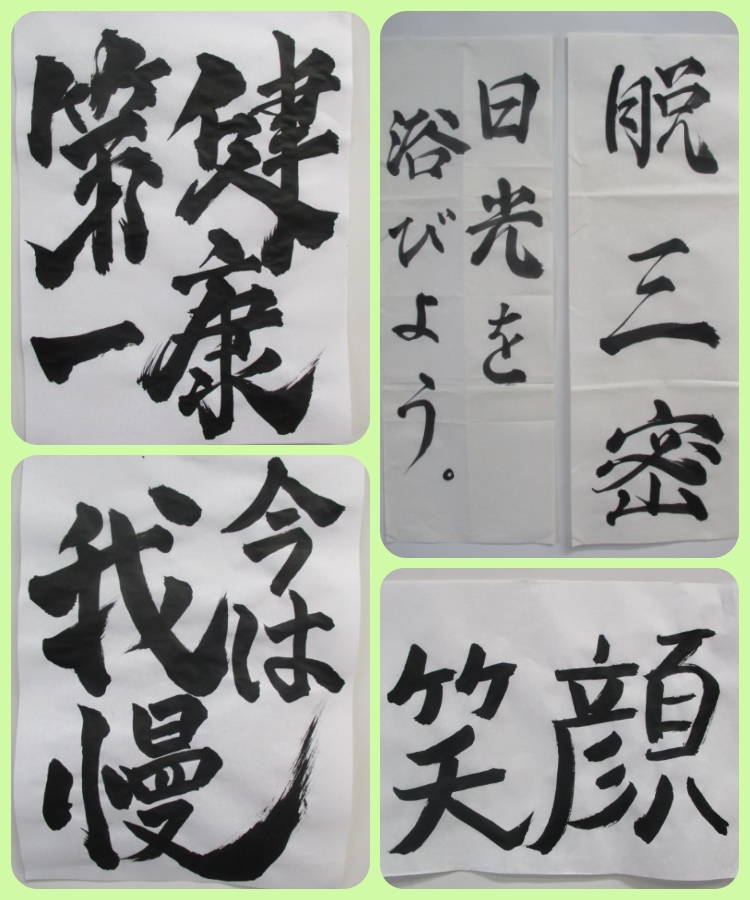 健康
第一
脱三密
日光を
浴びよう。
今は
我慢
笑顔